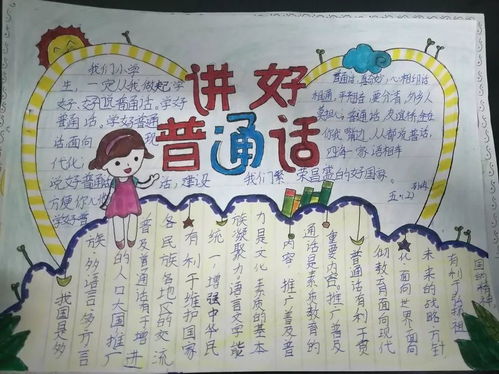 讲好
普通话
我们小学
生，一定从我做起学
普通话。学好普通
话面向 现
代化
说好普通话 话，建设
方便你
学好普
普通话，真奇妙，心相印话
相通，平翘话，要分清，外乡人
莫担心，普通话，友谊桥
你我嘴边，人人都普话，
四海一家语相牵
我们繁荣昌盛的好国家。
五.(2)
我国是多
族多语言多方言
的人口大国推广
普及普通话有于增进
各民族各地区的交流
有利于维护国家
统一增强中华民
族凝聚力语言文字能
力是文化素质的基本
内容推广普及普
通话是素质教育的
重要内容。推广普及
普通话有利于贯
彻教育面向现代
化面向世界面向
未来的战略方针
有利于弘扬祖
国的精神